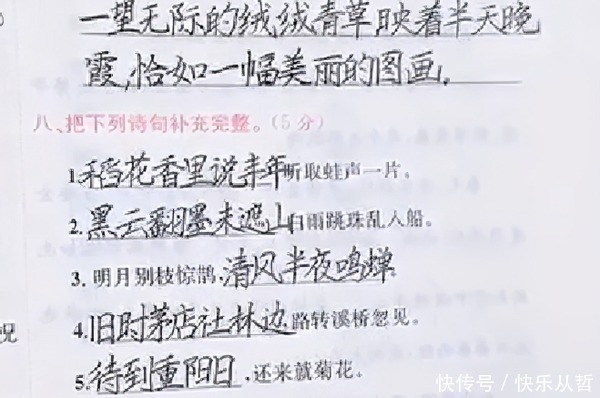 一望无际的绒绒青草映着半天晚
霞,恰如一幅美丽的图画.
八、把下列诗句补充完整。(5分)
1.稻花香里说丰年听取蛙声一片。
2.黑云翻墨未遮山白雨跳珠乱入船。
3.明月别枝惊鹊,清风半夜鸣蝉
况
4.旧时茅店社林边路转溪桥忽见。
5.待到重阳日,还来就菊花。
快传号/快乐从哲